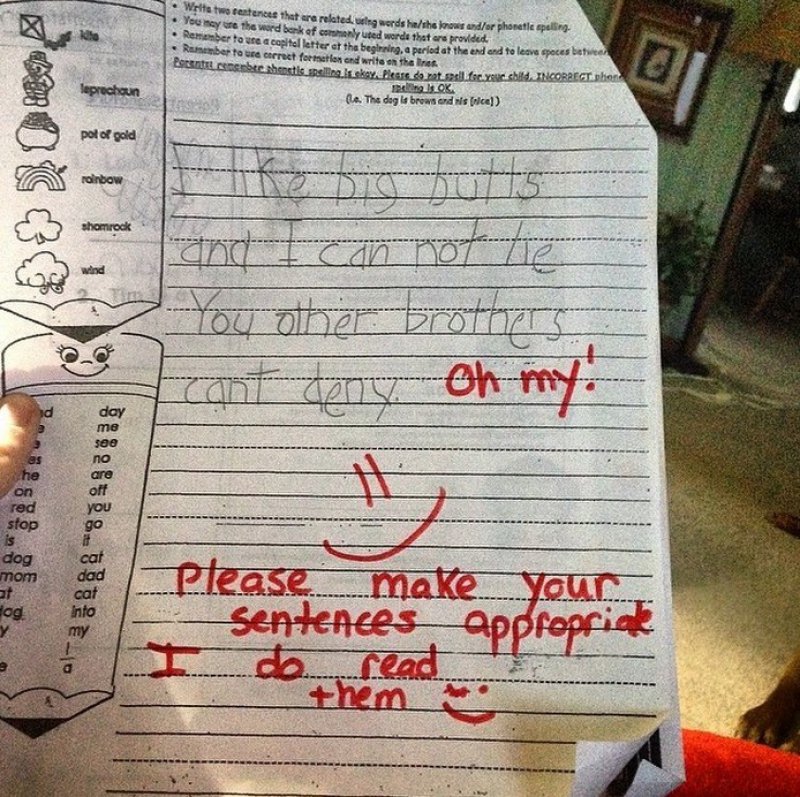 • Write two sentences that are related, using words he/she knows and/or phonetic spelling.
• You may use the word bank of commonly used words that are provided.
• Remember to use a capital letter at the beginning, a period at the end and to leave spaces between
• Remember to use correct formation and write on the lines.
Parents: remember phonetic spelling is okay. Please do not spell for your child. INCORRECT phon
spelling is OK.
(i.e. The dog is brown and nis [nice])
kite
leprechaun
pot of gold
rainbow
shamrock
wind
I like big butts
and I can not lie
You other brothers
cant deny. Oh my!
Please make your
sentences appropriate
I do read
them
day
me
see
no
he are
on off
red you
stop go
is it
dog cat
mom dad
at cat
into
my
I
a